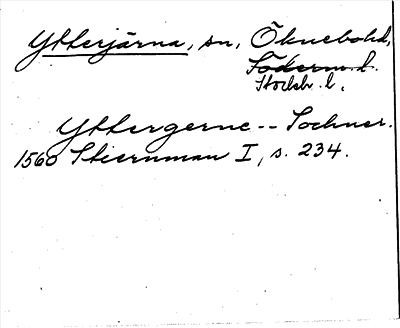 Ytterjärna, sn, Öknebohd,
Söderm. l.
Stockh. l.
Yttergerne -- Sochner.
1560 Stiernman I, s. 234.